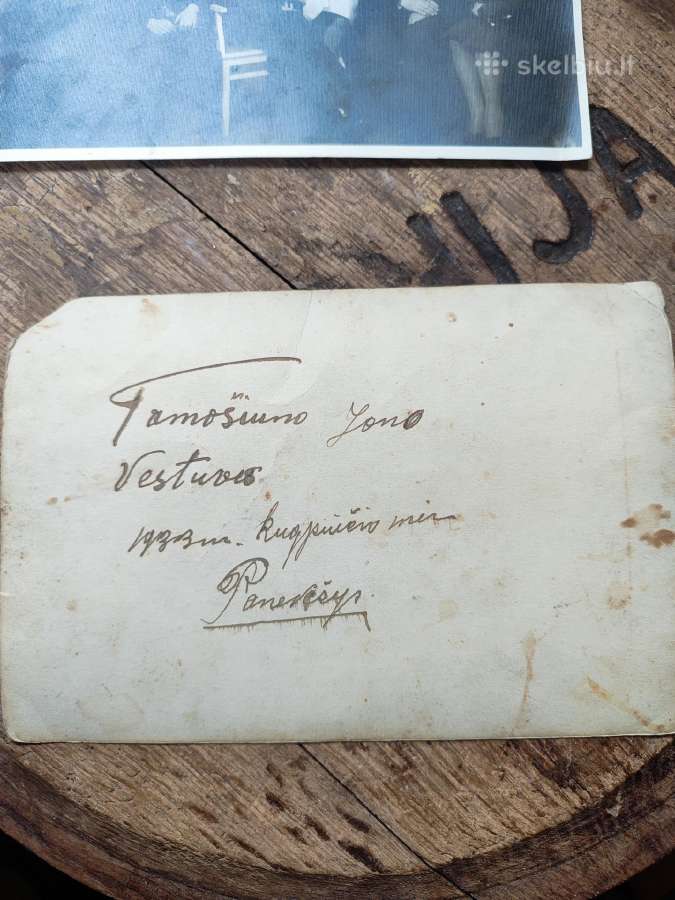 skelbiu.lt
IJA
Tamošiuno Jono
Vestuves
1933 m. Rugpiučio mėn
Panevėžys.